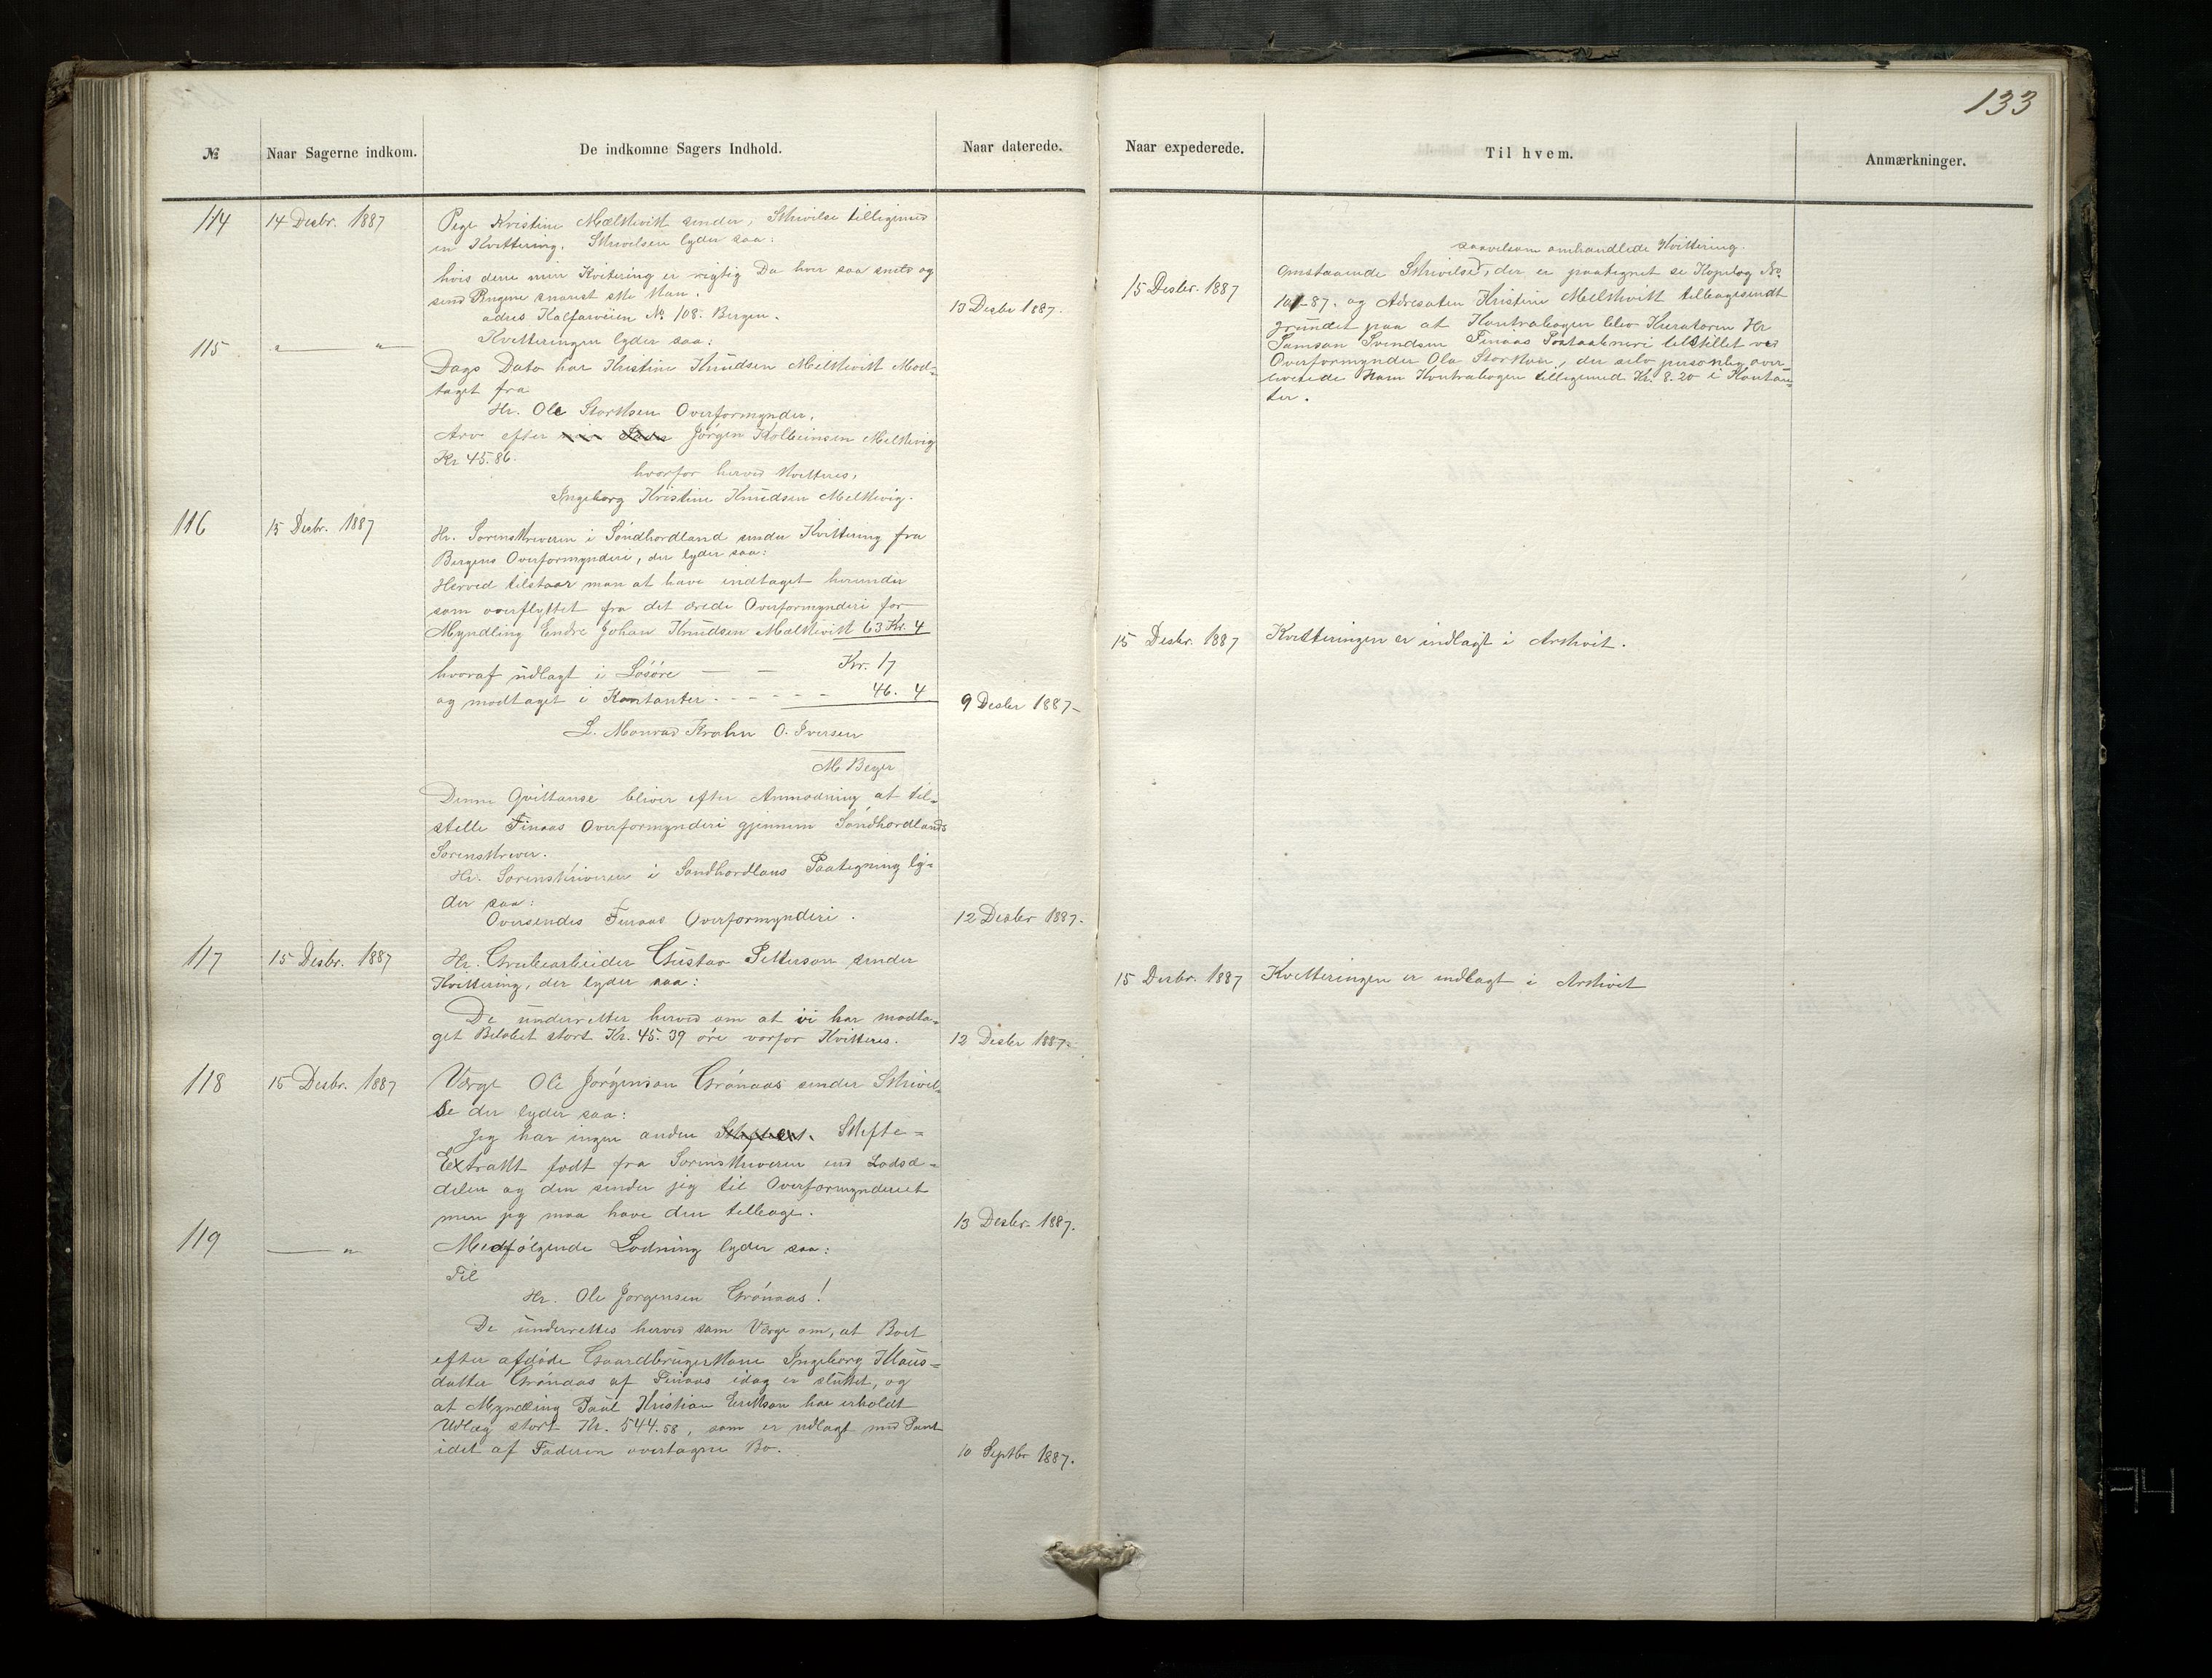 133
№ Naar Sagerne indkom. De indkomne Sagers Indhold. Naar daterede. Naar expederede. Til hvem. Anmærkninger.
114 14 Desbr. 1887
Pige Kristine Mælkevikk sender, Skrivelse tilligemed
en Kvittering. Skrivelsen lyder saa:
hvis denne min Kvitering er rigtig Da hver saa snild og
send Pengene snarest ske Kan.
adres Kalfarveien № 108. Bergen.
13 Desbr 1887.
Kvitteringen lyder saa:
115 " — "
Dags Dato har Kristine Knudsen Melkevikk Mod-
taget fra
Hr. Ole Storksen Overformynder.
Arv efter Jørgen Kolbeinsen Melkevig
Kr 45.86.
hvorfor herved Kvitteres,
Ingeborg Kristine Knudsen Melkevig.
116 15 Desbr. 1887
Hr. Sorenskriveren i Søndhordland sender Kvittering fra
Bergens Overformynderi, der lyder saa:
Herved tilstaar man at have indtaget herunder
som overflyttet fra det ærede Overformynderi for
Myndling Endre Johan Knudsen Mælkevikk 63 Kr. 4
hvoraf udlagt i Løsøre — — Kr. 17
og modtaget i Kontanter - - - - - 46. 4
9 Desbr 1887-
L. Monrad Krohn O. Iversen
M Beyer
Denne Qvittanse bliver efter Anmodning at til-
stelle Finaas Overformynderi gjennem Søndhordlands
Sorenskriver.
Hr. Sorenskriveren i Søndhordlans Paategning ly-
der saa:
Oversendes Finaas Overformynderi.
12 Desbr 1887.
117 15 Desbr. 1887
Hr. Grubearbeider Gustav Petterson sender
Kvittering, der lyder saa:
De underretter herved om at vi har modta-
get Beløbet stort Kr. 45.39 øre vorfor Kvitteres.
12 Desbr 1887.
118 15 Desbr. 1887
Værge Ole Jørgenson Grønaas sender Skrivel-
se der lyder saa:
Jeg har ingen anden Skifte-
Extrakt fodt fra Sorenskriveren end Lodse-
delen og den sender jeg til Overformynderiet
men jeg maa have den tilbage.
13 Desbr. 1887.
119 — "
Medfølgende Lodning lyder saa:
Til
Hr. Ole Jørgensen Grønaas!
De underrettes herved som Værge om, at Boet
efter afdøde Gaardbrugerkone Ingeborg Klaus-
datter Grønaas af Finaas idag er sluttet, og
at Myndling Paul Kristian Erikson har erholdt
Udlæg stort Kr. 544.58, som er udlagt med Pant
idet af Faderen overtagne Bo.
10 Septbr 1887.
15 Desbr. 1887
saavelsom omhandlede Kvittering.
Omstaaende Skrivelse, der er paategnet se Kopibog No
101-87. og Adresaten Kristine Melkevikk tilbagesendt
grundet paa at Kontrabogen blev Kuratoren Hr
Samson Svendsen Finaas Postaabneri tilstillet ved
Overformynder Ole Storksen, der selv personlig over-
leverede Ham Kontrabogen tilligemed Kr. 8.20 i Kontan-
ter.
15 Desbr. 1887 Kvitteringen er indlagt i Arkivit.
15 Desbr. 1887 Kvitteringen er indlagt i Arkivit
94